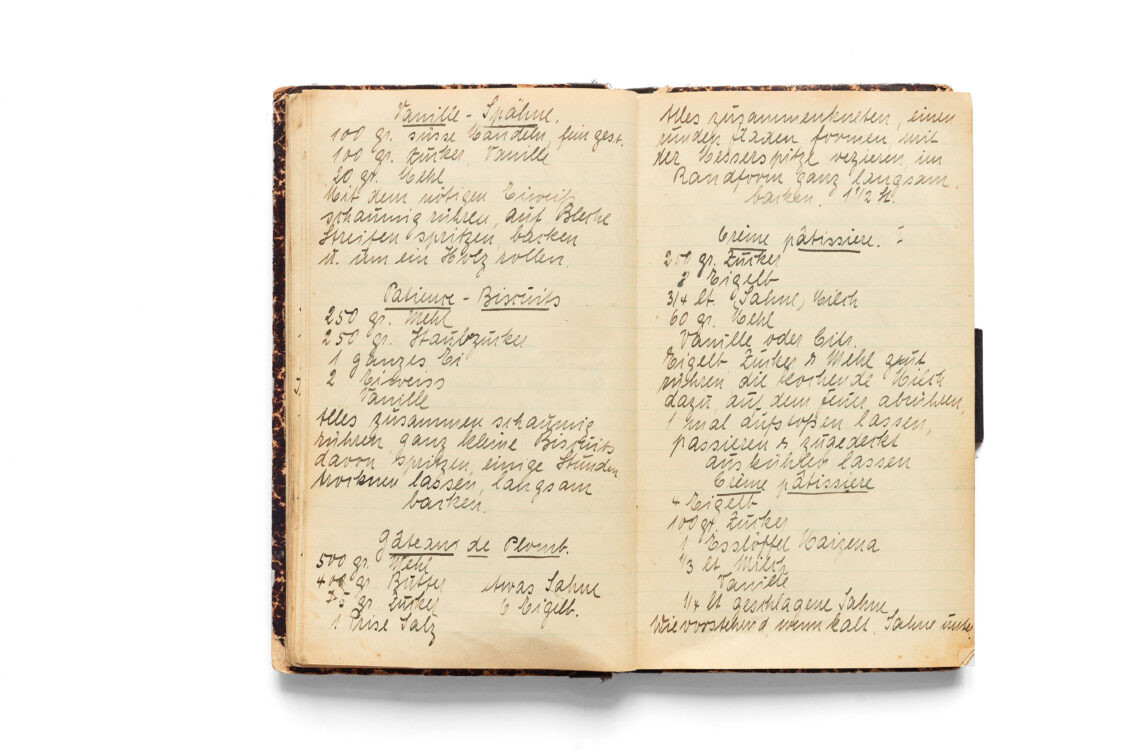 Vanille - Spähne.
100 gr. süsse Mandeln, fein gest.
100 gr. Zucker, Vanille
20 gr. Mehl
Mit dem nötigen Eiweiß
schaumig rühren, auf Bleche
Streifen spritzen, backen
u. um ein Holz rollen.
Patience - Biscuits
250 gr. Mehl
250 gr. Staubzucker
1 ganzes Ei
2 Eiweiss
Vanille
Alles zusammen schaumig
rühren, ganz kleine Biscuits
davon spritzen, einige Stunden
trocknen lassen, langsam
backen.
Gâteaus de Plomb.
500 gr. Mehl
400 gr. Butter etwas Sahne
75 gr. Zucker 6 Eigelb.
1 Prise Salz
Alles zusammenkneten, einen
runden Fladen formen, mit
der Messerspitze vezieren, im
Randform ganz langsam
backen. 1 1/2 St.
Crème pâtissiere. I
250 gr. Zucker
Eigelb
3/4 lt. (Sahne) Milch
60 gr. Mehl
Vanille oder Citr.
Eigelb, Zucker & Mehl gut
rühren, die kochende Milch
dazu, auf dem Feuer abrühren,
1 mal aufstoßen lassen,
passieren & zugedeckt
auskühlen lassen
Crème pâtissiere
4 Eigelb
100 gr. Zucker
1 Esslöffel Maizena
1/3 lt. Milch
Vanille
1/4 lt geschlagene Sahne
Wie vorstehend, wenn kalt, Sahne